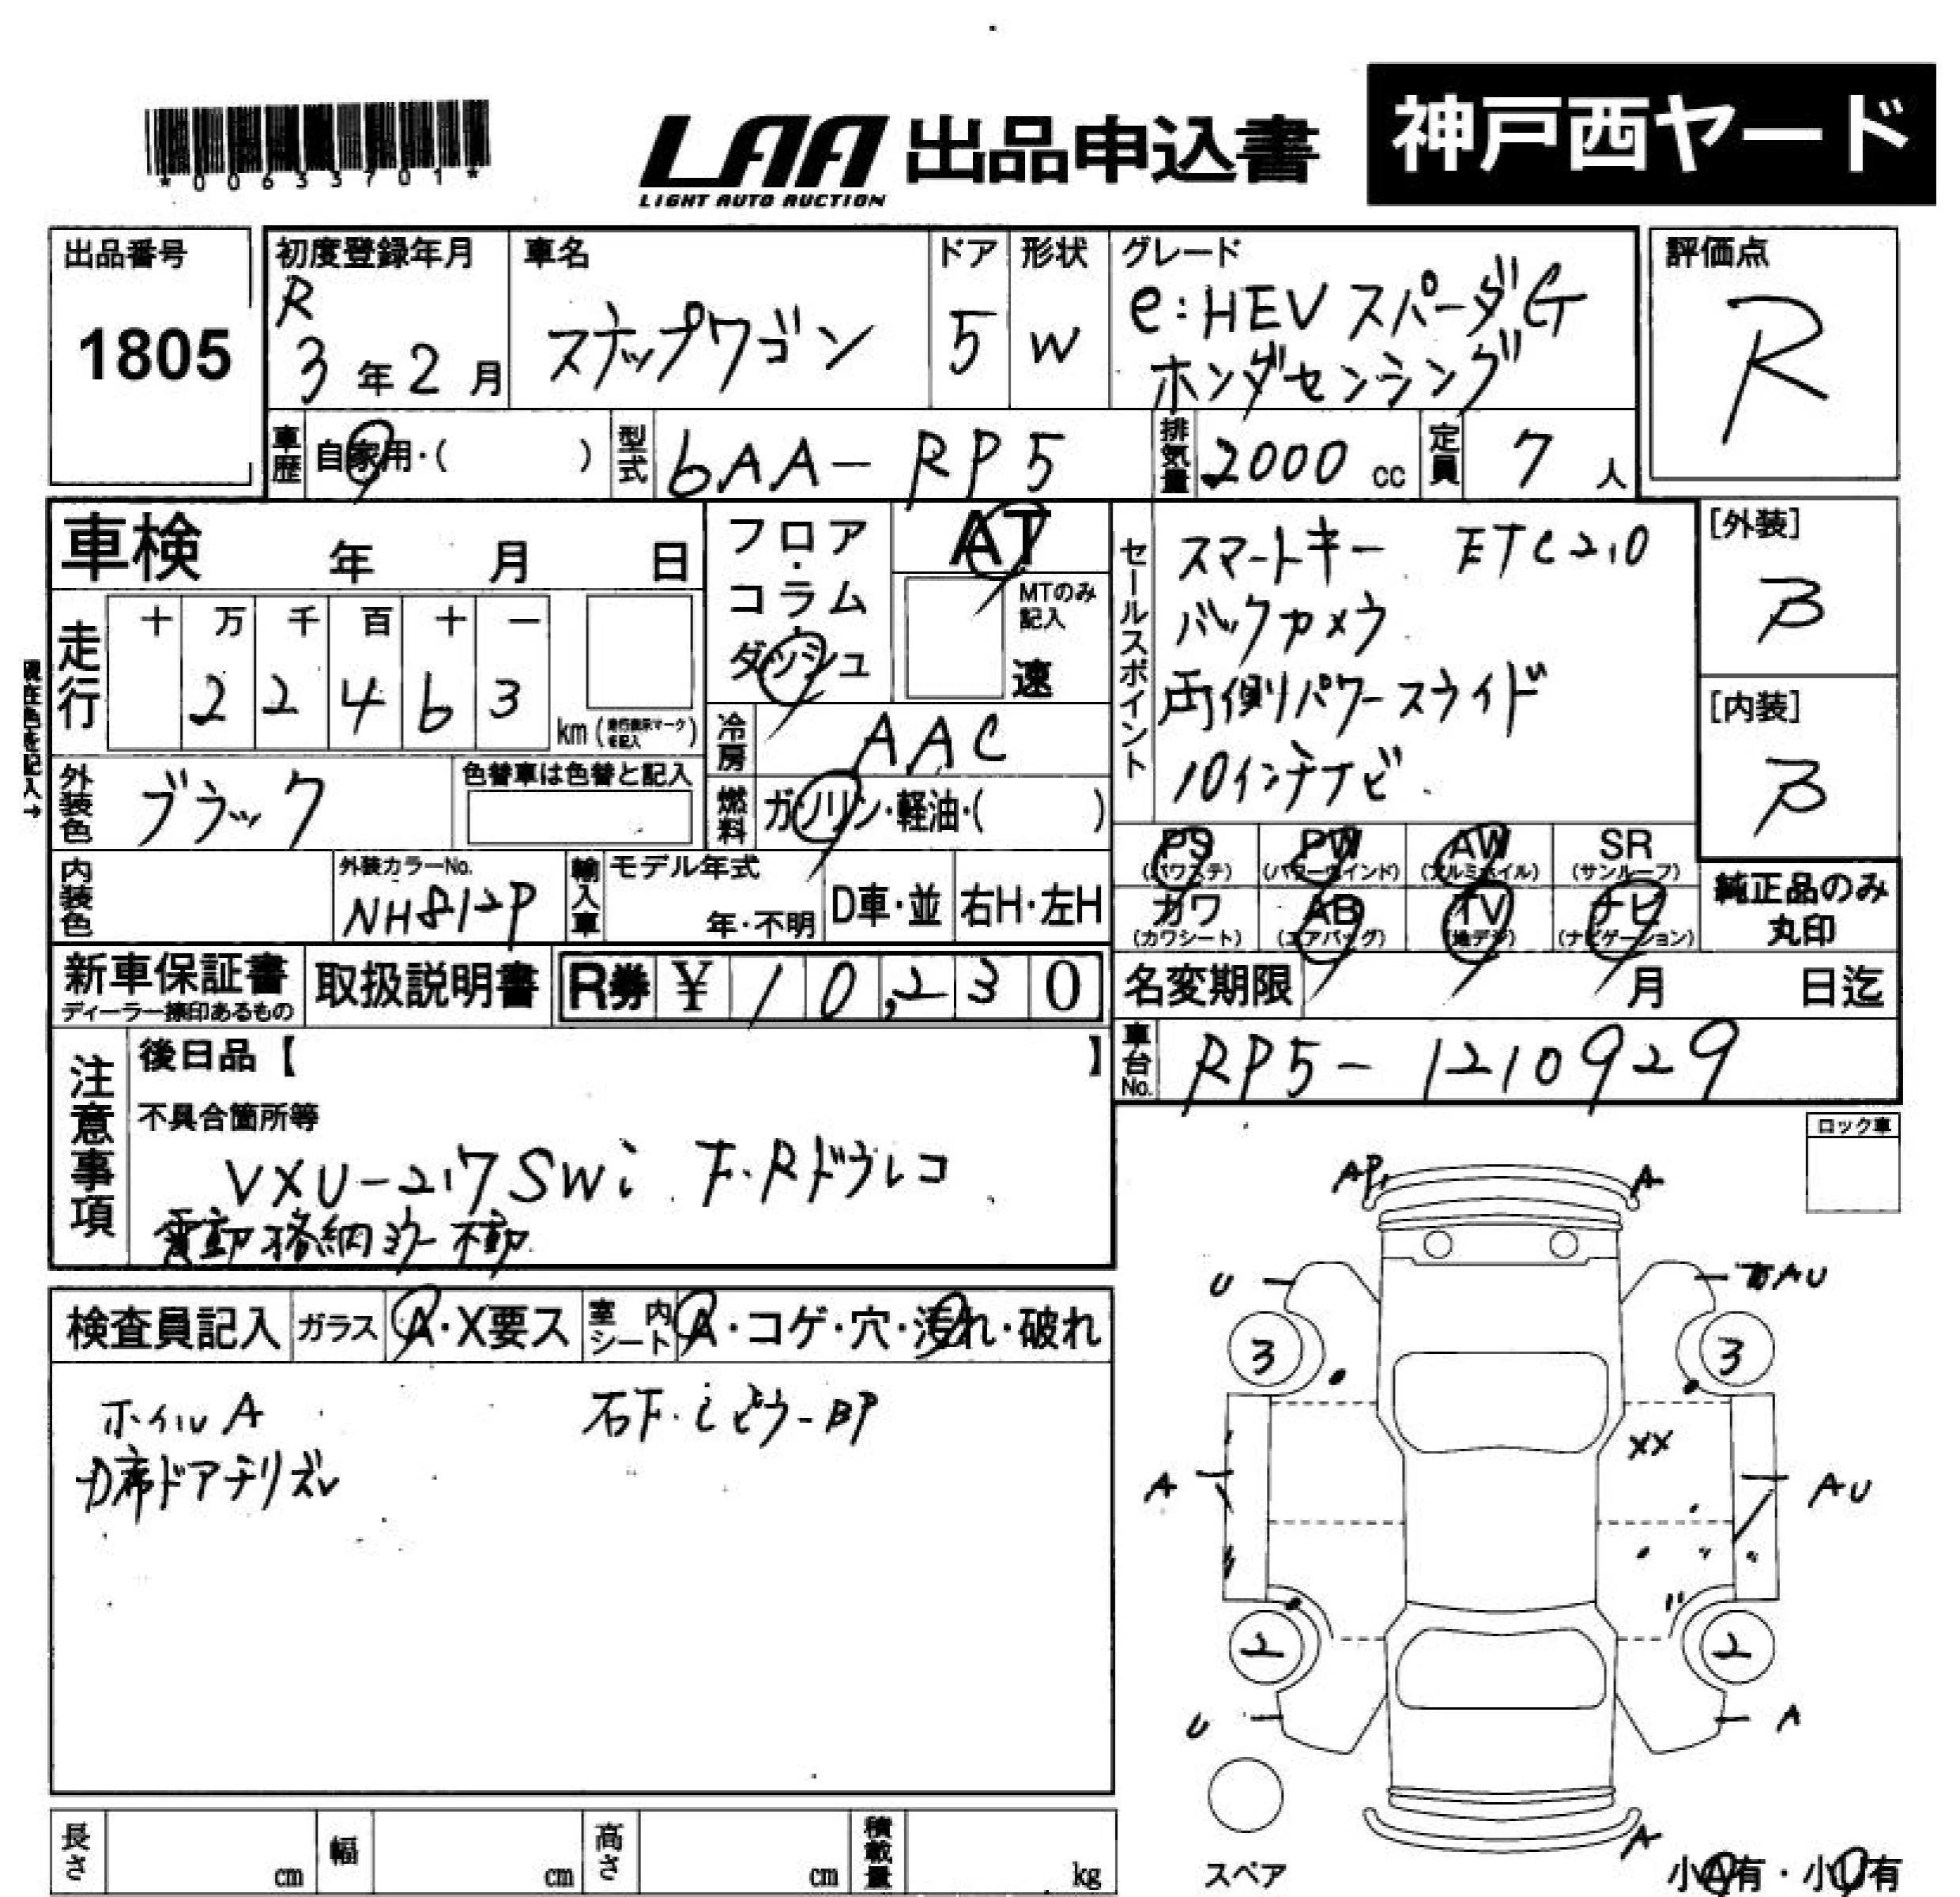 *00633701*
LAA 出品申込書 神戸西ヤード
LIGHT AUTO AUCTION
出品番号 1805
初度登録年月 R 3年2月
車名 ステップワゴン
ドア 5
形状 W
グレード e:HEV スパーダG
ホンダセンシング
評価点 R
車歴 自家用・( )
型式 6AA-RP5
排気量 2000cc
定員 7人
車検 年 月 日
フロア・コラム・ダッシュ
AT
MTのみ記入 速
セールスポイント
スマートキー ETC2.0
バックカメラ
両側パワースライド
10インチナビ
[外装] B
[内装] B
走行 十 万 千 百 十 一
2 2 4 6 3
km (走行表示マークを記入)
現在色を記入→
冷房 AAC
外装色 ブラック
色替車は色替と記入
燃料 ガソリン・軽油・( )
PS (パワステ) PW (パワーウインド) AW (アルミホイル) SR (サンルーフ)
カワ (カワシート) AB (エアバッグ) TV (地デジ) ナビ (ナビゲーション)
純正品のみ
丸印
内装色
外装カラーNo. NH812P
輸入車 モデル年式 年・不明
D車・並 右H・左H
新車保証書
ディーラー捺印あるもの
取扱説明書
R券 ¥ 10,230
名変期限 月 日迄
車台No. RP5-1210929
注意事項
後日品【 】
不具合箇所等
VXU-217SWi F.Rドラレコ
電動格納ミラー不動
検査員記入 ガラス A・X要ス 室内シート A・コゲ・穴・汚れ・破れ
ホイルA
D席ドアチリズレ
右F.
ロック車
AP A
U AU
3 3
XX
A AU
2 2
U A
A
スペア
小A有・小U有
長さ cm 幅 cm 高さ cm 積載量 kg